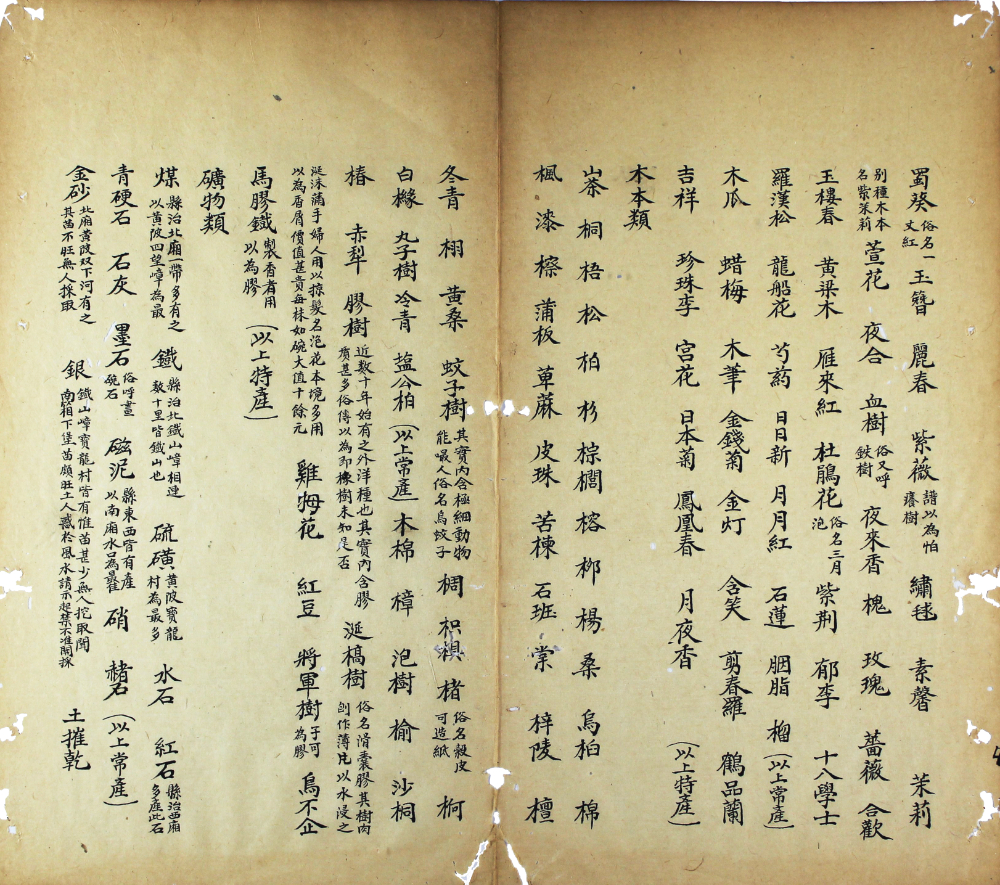 蜀葵俗名一丈紅 玉簪 麗春 紫薇譜以為怕癢樹 繡毬 素馨 茉莉
別種木本名紫茉莉 萱花 夜合 血樹俗又呼鉄樹 夜來香 槐 玫瑰 薔薇 合歡
玉樓春 黄梁木 雁來紅 杜鵑花俗名三月泡 紫荆 郁李 十八學士
羅漢松 龍船花 芍葯 日日新 月月紅 石蓮 胭脂 榴(以上常產)
木瓜 蜡梅 木筆 金錢菊 金灯 含笑 剪春羅 鶴品蘭
吉祥 珍珠李 宫花 日本菊 鳳凰春 月夜香 (以上特產)
木本類
茶 桐 梧 松 柏 杉 棕櫚 榕 柳 楊 桑 烏桕 棉
楓 漆 檫 蒲板 萆蔴 皮珠 苦楝 石班 棠 梓陵 檀
冬青 栩 黄桑 蚊子樹其實內含極細動物能嘬人俗名烏蚊子 椆 枳椇 楮俗名穀皮可造紙 柯
白橼 丸子樹 冷青 塩公柏(以上常產) 木棉 樟 泡樹 榆 沙桐
椿 赤犁 膠樹近数十年始有之外洋種也其實內含膠質甚多俗傳以為即橡樹未知是否 涎槁樹俗名滑囊膠其樹肉刨作薄片以水浸之
涎沫滿手婦人用以掠髮名泡花本境多用以為香屑價值甚貴每株如碗大值十餘元 雞拇花 紅豆 將軍樹子可為膠 烏不企
馬膠鐵製香者用以為膠 (以上特產)
礦物類
煤縣治北廂一帶多有之以黄陂四望嶂為最 鐵縣治北鐵山嶂相連数十里皆鐵山也 硫磺黄陂寳龍村為最多 水石 紅石縣治西廂多產此石
青硬石 石灰 墨石俗呼畫碗石 磁泥縣東西皆有產以南廂水口為最佳 硝 赭石(以上常產)
金砂北廂黄陂双下河有之其苗不旺無人採取 銀鐵山嶂寳龍村皆有惟苗甚少無人挖取聞南箱下堡苗頗旺土人惑於風水請示起禁不准開採 土摧乾